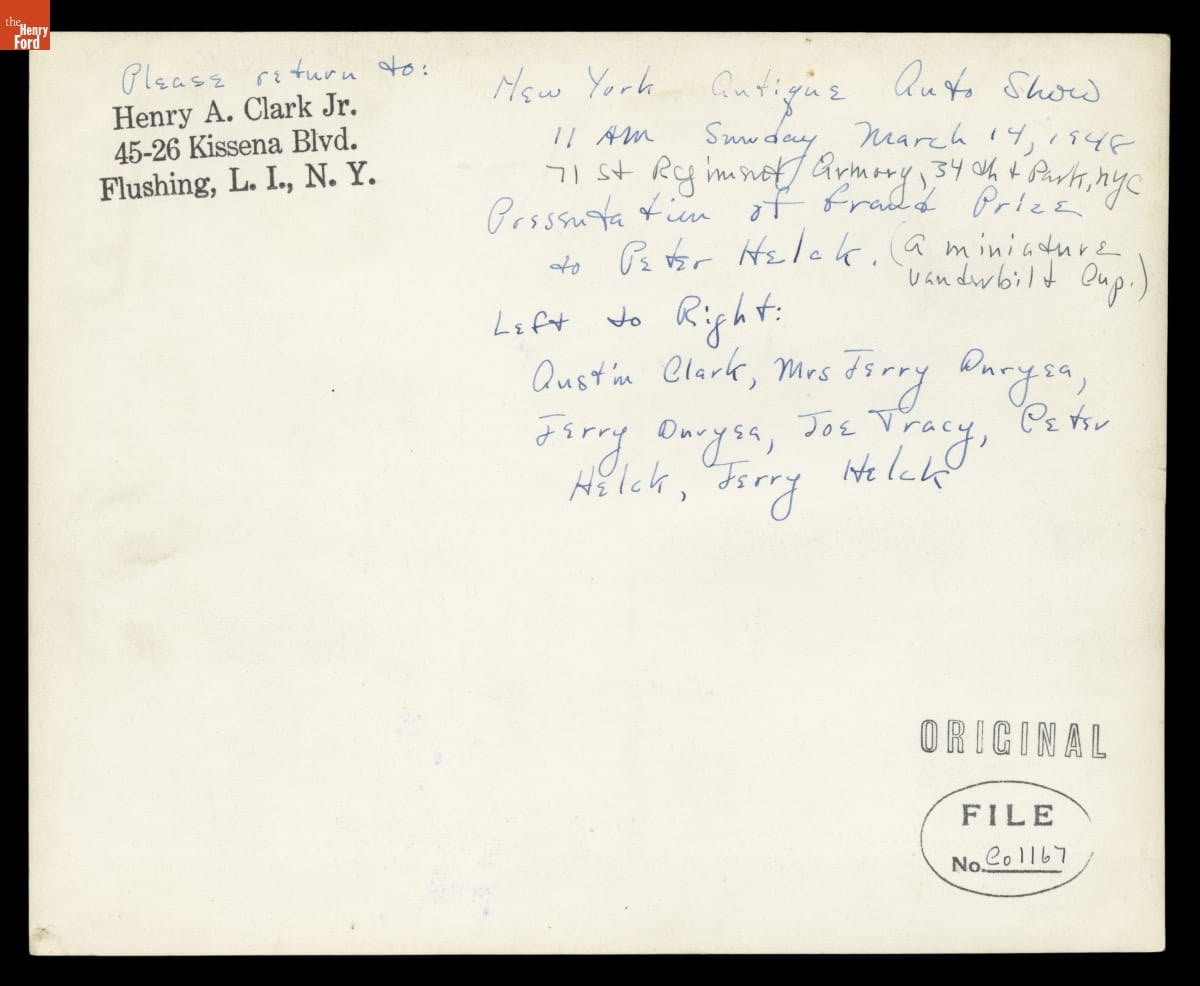 the
Henry
Ford
Please return to:
Henry A. Clark Jr.
45-26 Kissena Blvd.
Flushing, L. I., N. Y.
New York Antique Auto Show
11 AM Sunday March 14, 1948
71 st Regiment Armory, 34 th + Park, NYC
Presentation of Grand Prize
to Peter Helck. (A miniature
Vanderbilt Cup.)
Left to Right:
Austin Clark, Mrs Jerry Duryea,
Jerry Duryea, Joe Tracy, Peter
Helck, Jerry Helck
ORIGINAL
FILE
No. Co1167